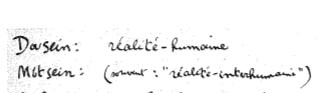 Dasein: réalité-humaine
Mitsein: (souvent: "réalité-interhumaine")